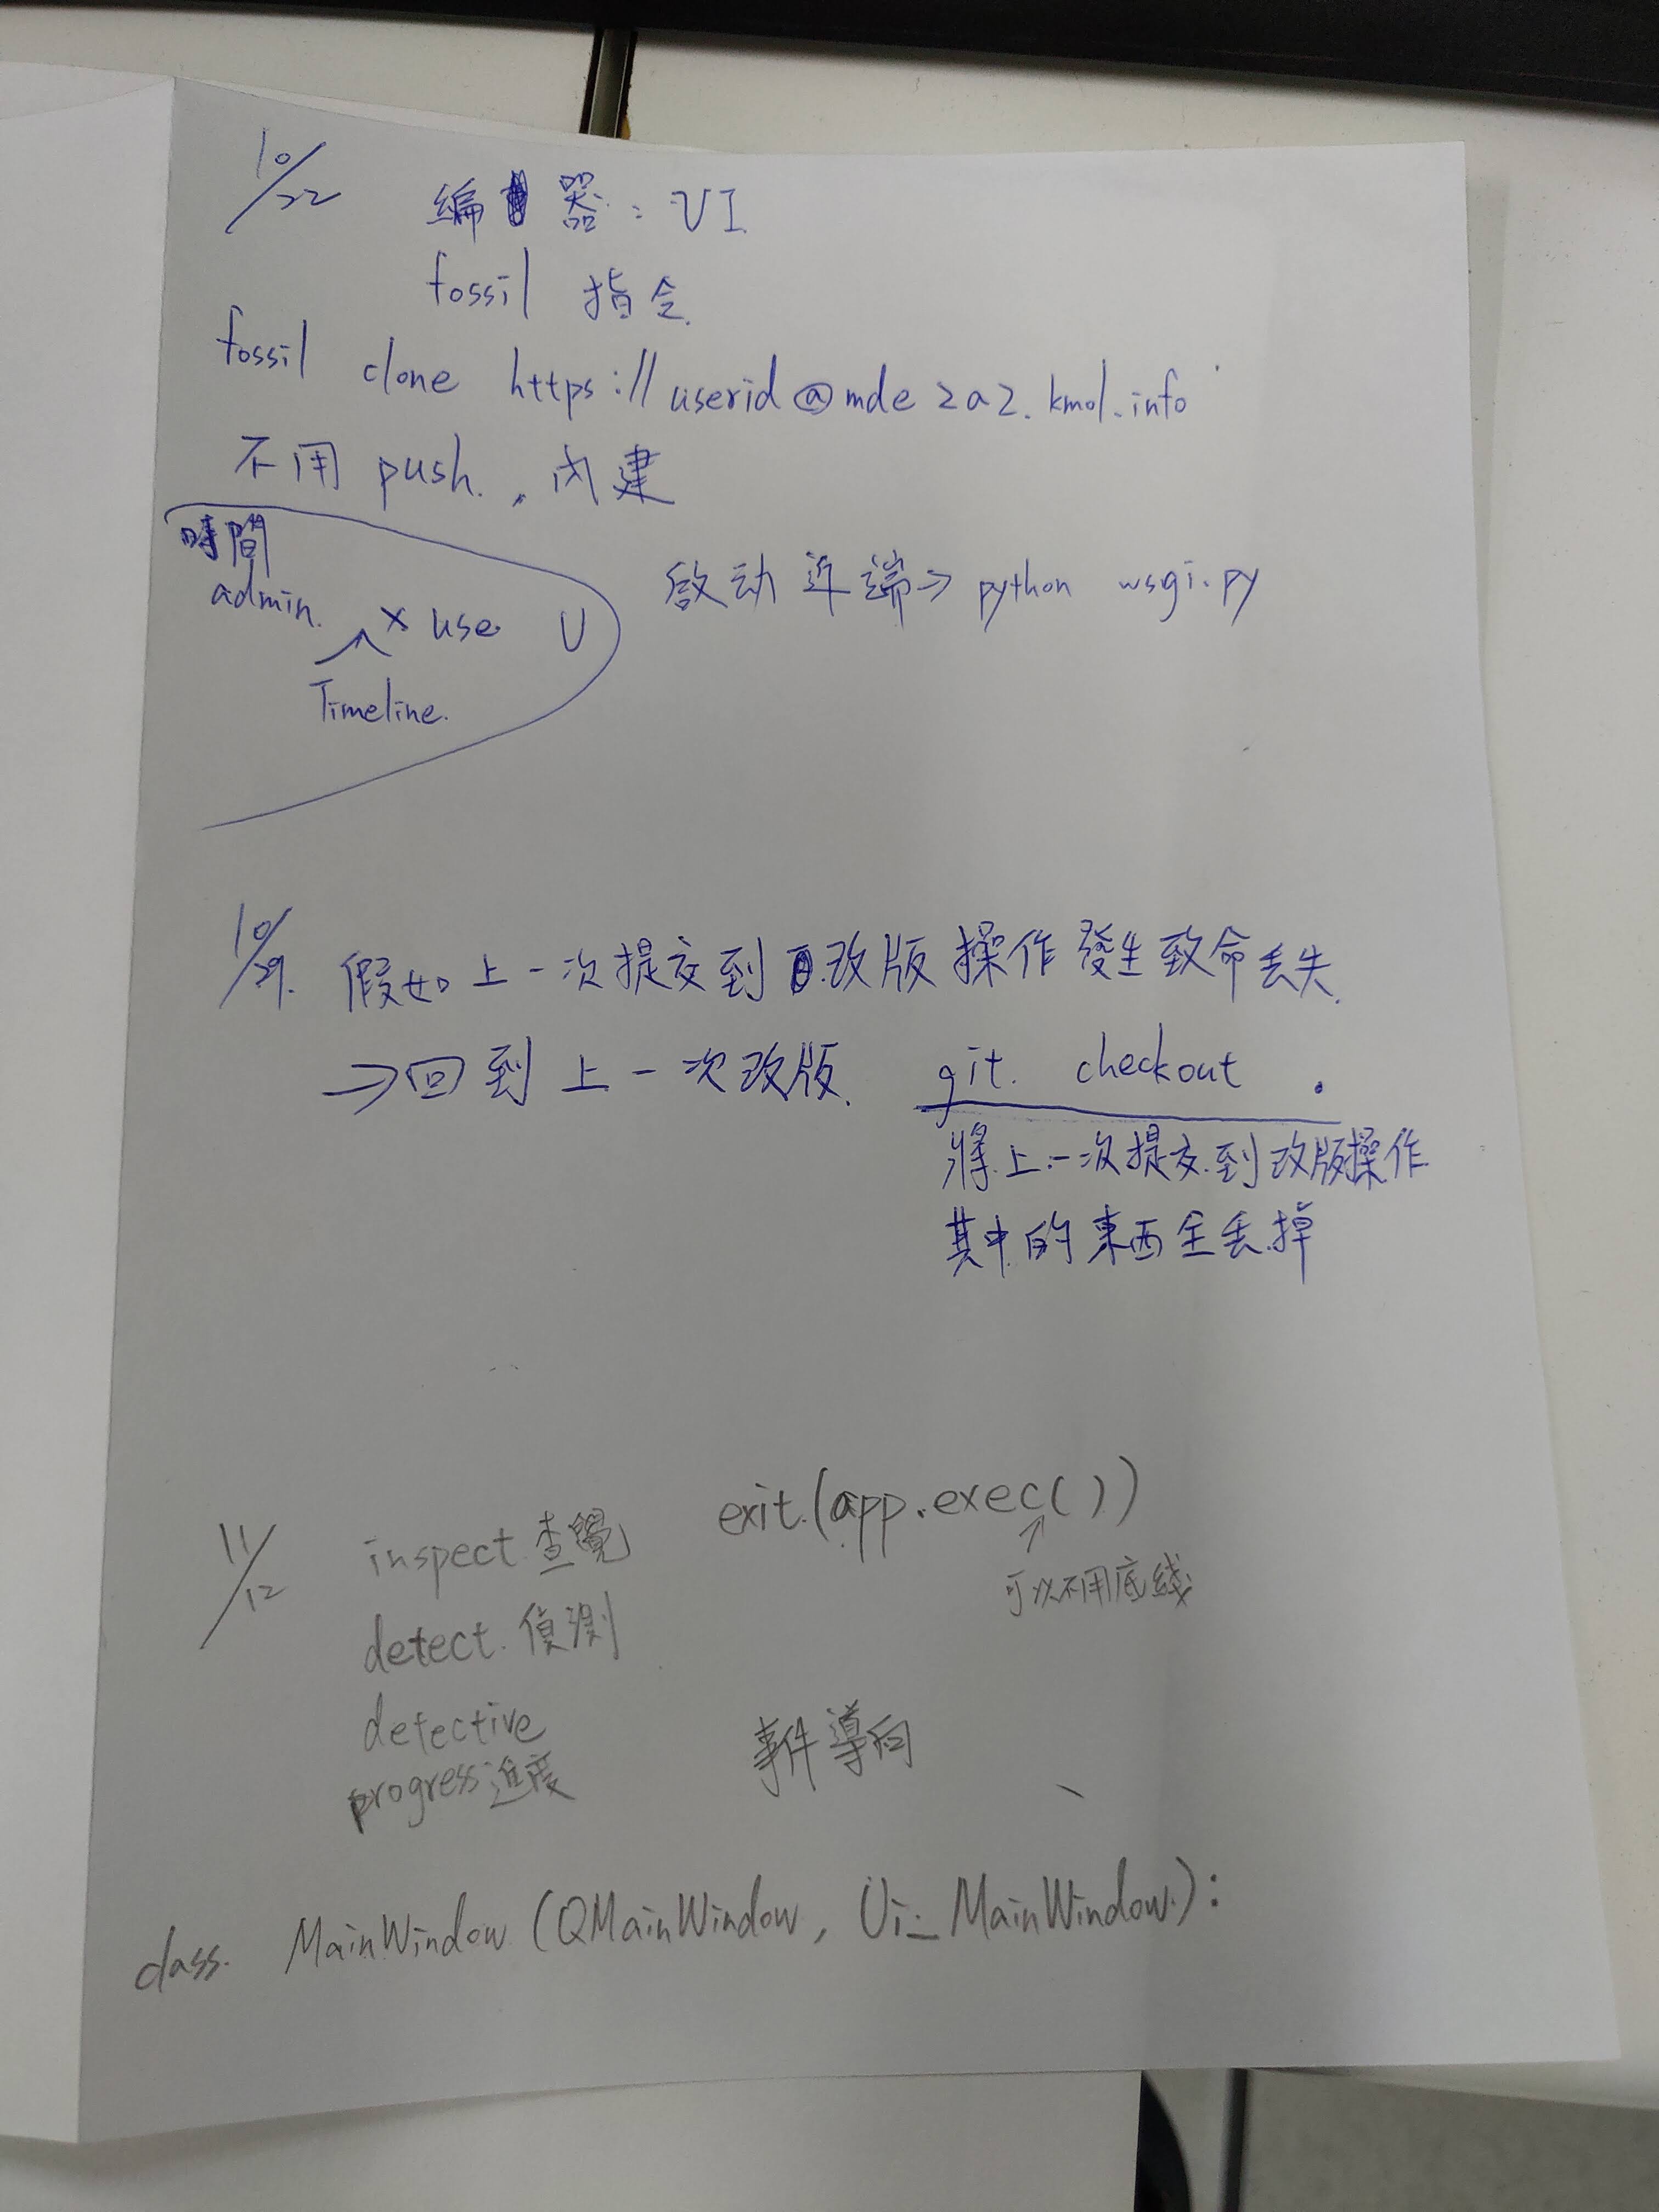 10/22 編器：VI
fossil 指令
fossil clone https://userid@mde2a2.kmol.info
不用 push.，內建
時間
admin. × use U
Timeline.
啟动近端→ python wsgi.py
10/29. 假如上一次提交到改版操作發生致命丟失.
→回到上一次改版. git. checkout .
將上一次提交到改版操作
其中的東西全丟掉
11/12 inspect 查覺 exit.(app.exec())
可以不用底線
detect. 偵測
detective
progress進度 事件導向
class. MainWindow (QMainWindow, Ui_MainWindow):